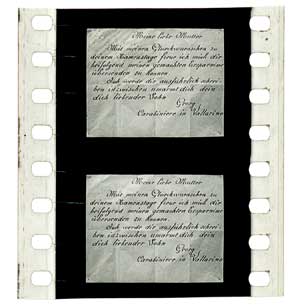 Meine liebe Mutter
Mit meinen Glückwunschen zu
deinem Namenstage freue ich mich dir
beifolgend meinen gemachten Ersparnisse
übersenden zu können.
Ich werde dir ausführlich schrei-
ben inzwischen umarmt dich dein
dich liebender Sohn
Georg
Carabiniere in Vallarino
Meine liebe Mutter
Mit meinen Glückwunschen zu
deinem Namenstage freue ich mich dir
beifolgend meinen gemachten Ersparnisse
übersenden zu können.
Ich werde dir ausführlich schrei-
ben inzwischen umarmt dich dein
dich liebender Sohn
Georg
Carabiniere in Vallarino